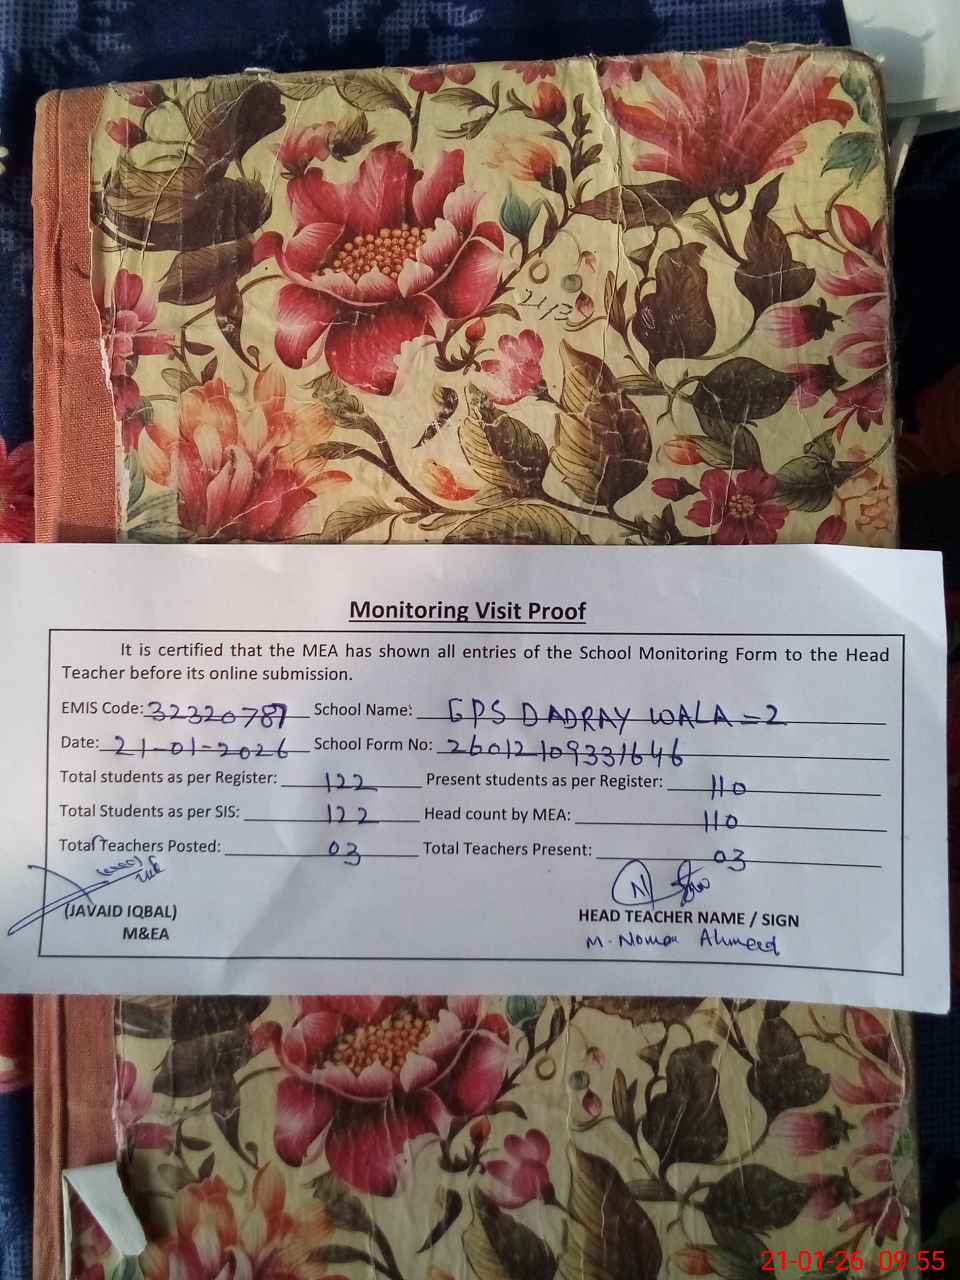 21/2
Monitoring Visit Proof
It is certified that the MEA has shown all entries of the School Monitoring Form to the Head
Teacher before its online submission.
EMIS Code: 32320787 School Name: GPS DADRAY WALA=2
Date: 21-01-2026 School Form No: 26012109331646
Total students as per Register: 122 Present students as per Register: 110
Total Students as per SIS: 122 Head count by MEA: 110
Total Teachers Posted: 03 Total Teachers Present: 03
(JAVAID IQBAL) HEAD TEACHER NAME / SIGN
M&EA M. Noman Ahmeed
21-01-26 09:55